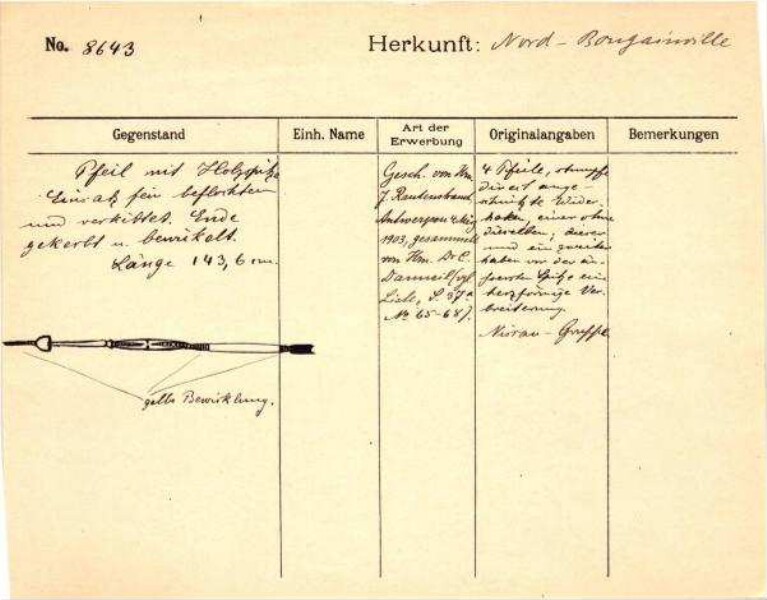 No. 8643
Herkunft: Nord-Bougainville
Gegenstand
Einh. Name
Art der
Erwerbung
Originalangaben
Bemerkungen
Pfeil mit Holzspitze
Einsatz fein beflochten
und verkittet. Ende
gekerbt u. bewickelt.
Länge 143,6 cm.
gelbe Bewicklung.
Gesch. von Hrn.
J. Rautenstrauch,
Antwerpen
1903, gesammelt
von Hrn. Dr. C.
Danneil (vgl.
Liste, S. 37a
No 65-68).
4 Pfeile, stumpfe
direct ange-
schnitzte Wider-
haken, einer ohne
dieselben, dieser
und ein zweiter
haben vor der äu-
ssersten Spitze eine
herzförmige Ver-
breiterung.
Gruppe